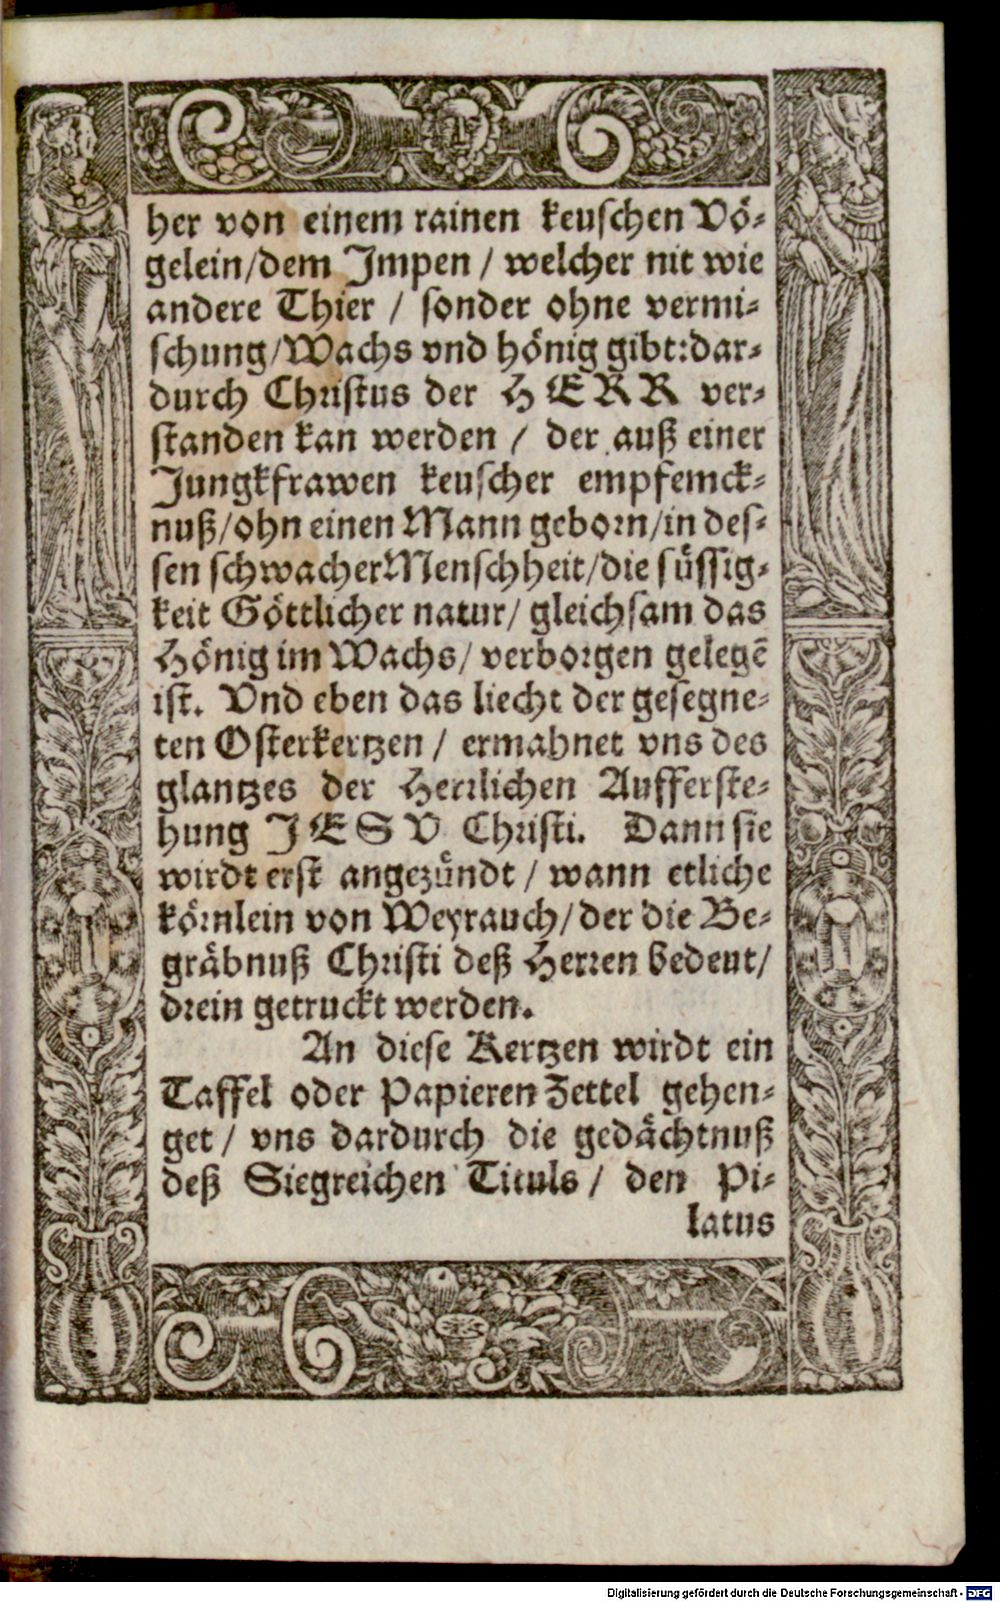 her von einem rainen keuschen Vö-
gelein/dem Impen / welcher nit wie
andere Thier / sonder ohne vermi-
schung/Wachs vnd hönig gibt:dar-
durch Christus der HERR ver-
standen kan werden / der auß einer
Jungkfrawen keuscher empfemck-
nuß/ohn einen Mann geborn/in des-
sen schwacher Menschheit/die süssig-
keit Göttlicher natur/ gleichsam das
Hönig im Wachs/ verborgen gelegē
ist. Vnd eben das liecht der gesegne-
ten Osterkertzen / ermahnet vns des
glantzes der Herrlichen Aufferste-
hung JESV Christi. Dann sie
wirdt erst angezündt / wann etliche
körnlein von Weyrauch/der die Be-
gräbnuß Christi deß Herren bedeut/
drein getruckt werden.
An diese Kertzen wirdt ein
Taffel oder Papieren Zettel gehen-
get / vns dardurch die gedächtnuß
deß Siegreichen Tituls / den Pi-
latus
Digitalisierung gefördert durch die Deutsche Forschungsgemeinschaft - DFG